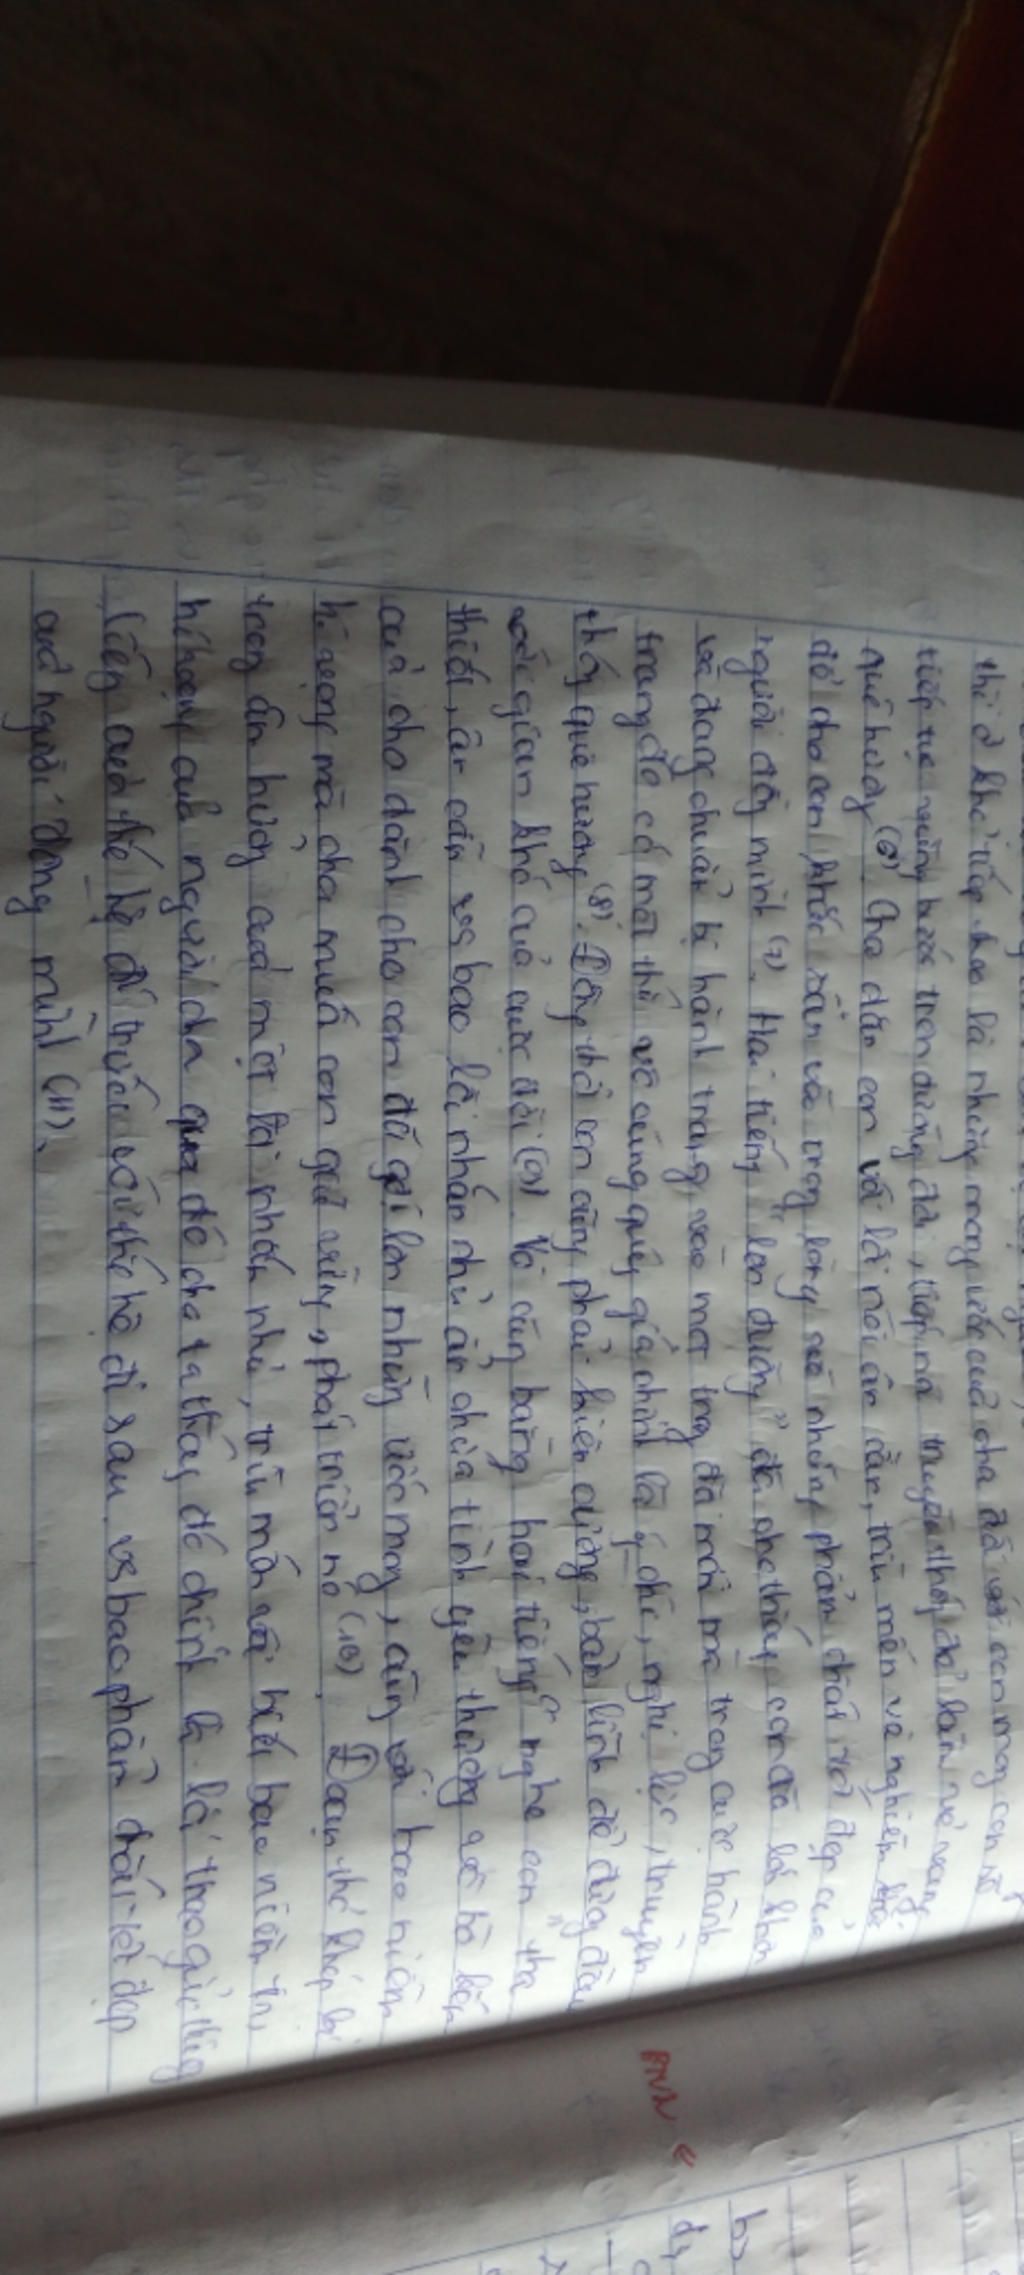 thì ở khổ tiếp theo là những mong ước của cha đối với con mong con sẽ
tiếp tục vững bước trên đường đời, tiếp nối truyền thống để làm vẻ vang
quê hương (6). Cha dặn con với lời nói ân cần, trìu mến và nghiêm
để cho con khắc sâu vào trong lòng về những phẩm chất tốt đẹp của
người đồng mình (7). Hai tiếng "lên đường" đã cho thấy con đã lớn khôn
và đang chuẩn bị hành trang vào một trang đời mới mà trong cuộc hành
trang đó có một thứ vô cùng quý giá chính là ý chí, nghị lực, truyền
thống quê hương (8). Đồng thời con cũng phải kiên cường, bản lĩnh để đương đầu
với gian khó của cuộc đời (9). Và cũng bằng hai tiếng "nghe con" tha
thiết, ân cần với bao lời nhắn nhủ ẩn chứa tình yêu thương vô bờ bến
của cha dành cho con đã gợi lên những ước mong, cùng với bao niềm
hi vọng mà cha muốn con giữ vững, phát triển nó (10). Đoạn thơ khép lại
trong âm hưởng của một lời nhắn nhủ, trìu mến với biết bao niềm tin
hi vọng của người cha qua đó cho ta thấy đó chính là lời trao gửi
của thế hệ đi trước với thế hệ đi sau về bao phẩm chất tốt đẹp
của người đồng mình (11).
RNN
b)